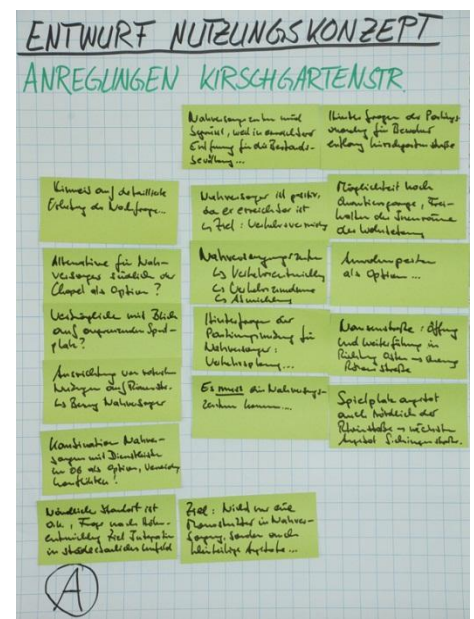 ENTWURF NUTZUNGSKONZEPT
ANREGUNGEN KIRSCHGARTENSTR.
Nahversorgungszentrum wird
weil in erreichbarer
Entfernung für die Bestands-
bevölkerung...
Hinterfragen der Parkings
für Besucher
entlang Kirschgartenstraße
Hinweis auf detaillierte
Erhebung der
Nahversorger ist positiv,
da er erreichbar ist
Ziel: Verkehrsvermeidung
Möglichkeit nach
Frei-
halten der Innenräume
der Wohnbebauung
Alternative für Nah-
versorger südlich der
Chapel als Option?
Nahversorgungszentrum
↳ Verkehrsentwicklung
↳ Verkehrszunahme
↳ Abwicklung
Anwohnerparken
als Option...
mit Blick
auf angrenzenden Spiel-
platz?
Hinterfragen der
für
Nahversorger:
Verkehrsplanung...
Öffnung
und Weiterführung in
Richtung Osten →
Ausrichtung von
auf Römerstr.
↳ Bezug Nahversorger
Es muss ein Nahversorgungs-
zentrum kommen...
Spielplatzangebot
auch nördlich der
Rheinstraße → nächstes
Angebot Sickingenstraße.
Kombination Nahver-
sorger mit Dienstleister
im OG als Option,
Nördlicher Standort ist
ok, Frage nach Höhen-
entwicklung Ziel Integration
in städtebauliches Umfeld
Ziel: Nicht nur eine
in Nahver-
sorgung, sondern auch
kleinteilige Angebote...
A